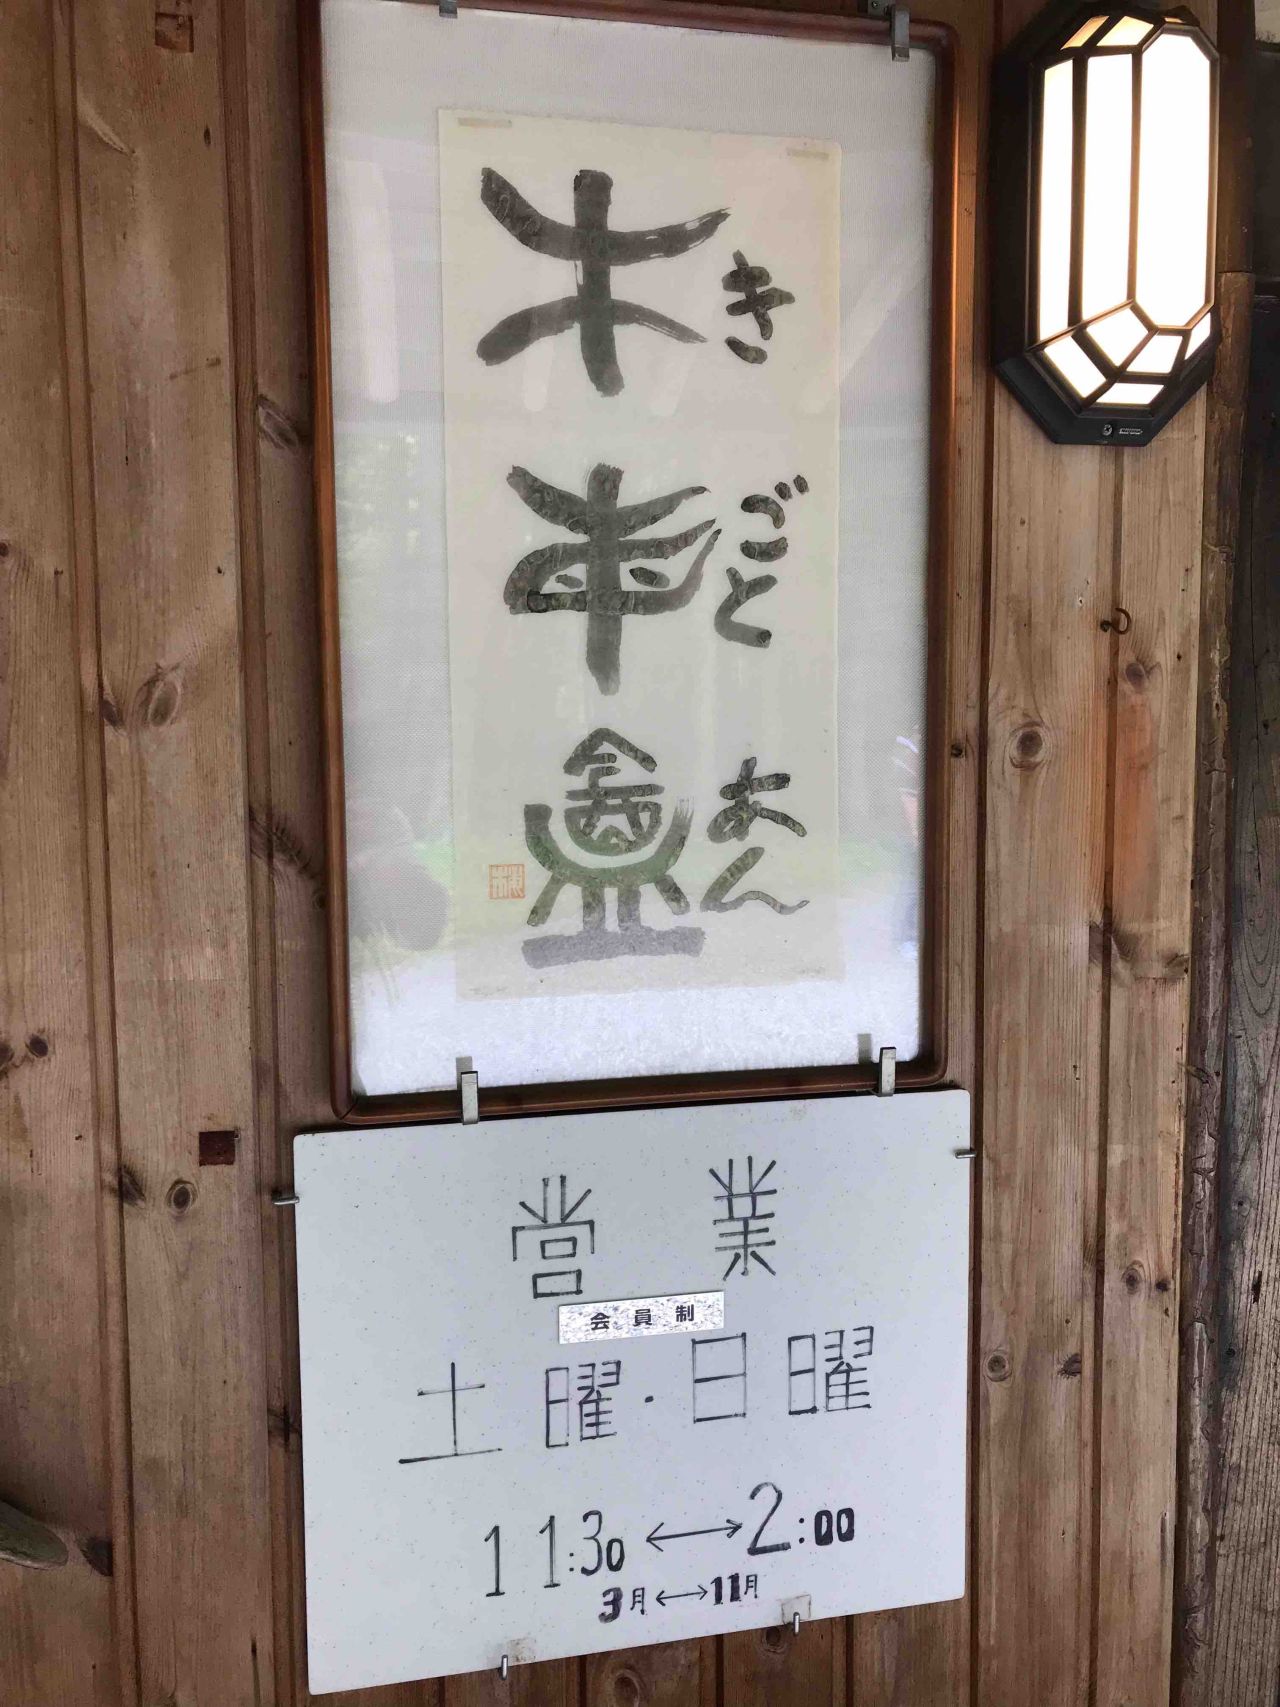 木事盦
きごとあん
営業
会員制
土曜・日曜
11:30 ↔ 2:00
3月 ↔ 11月